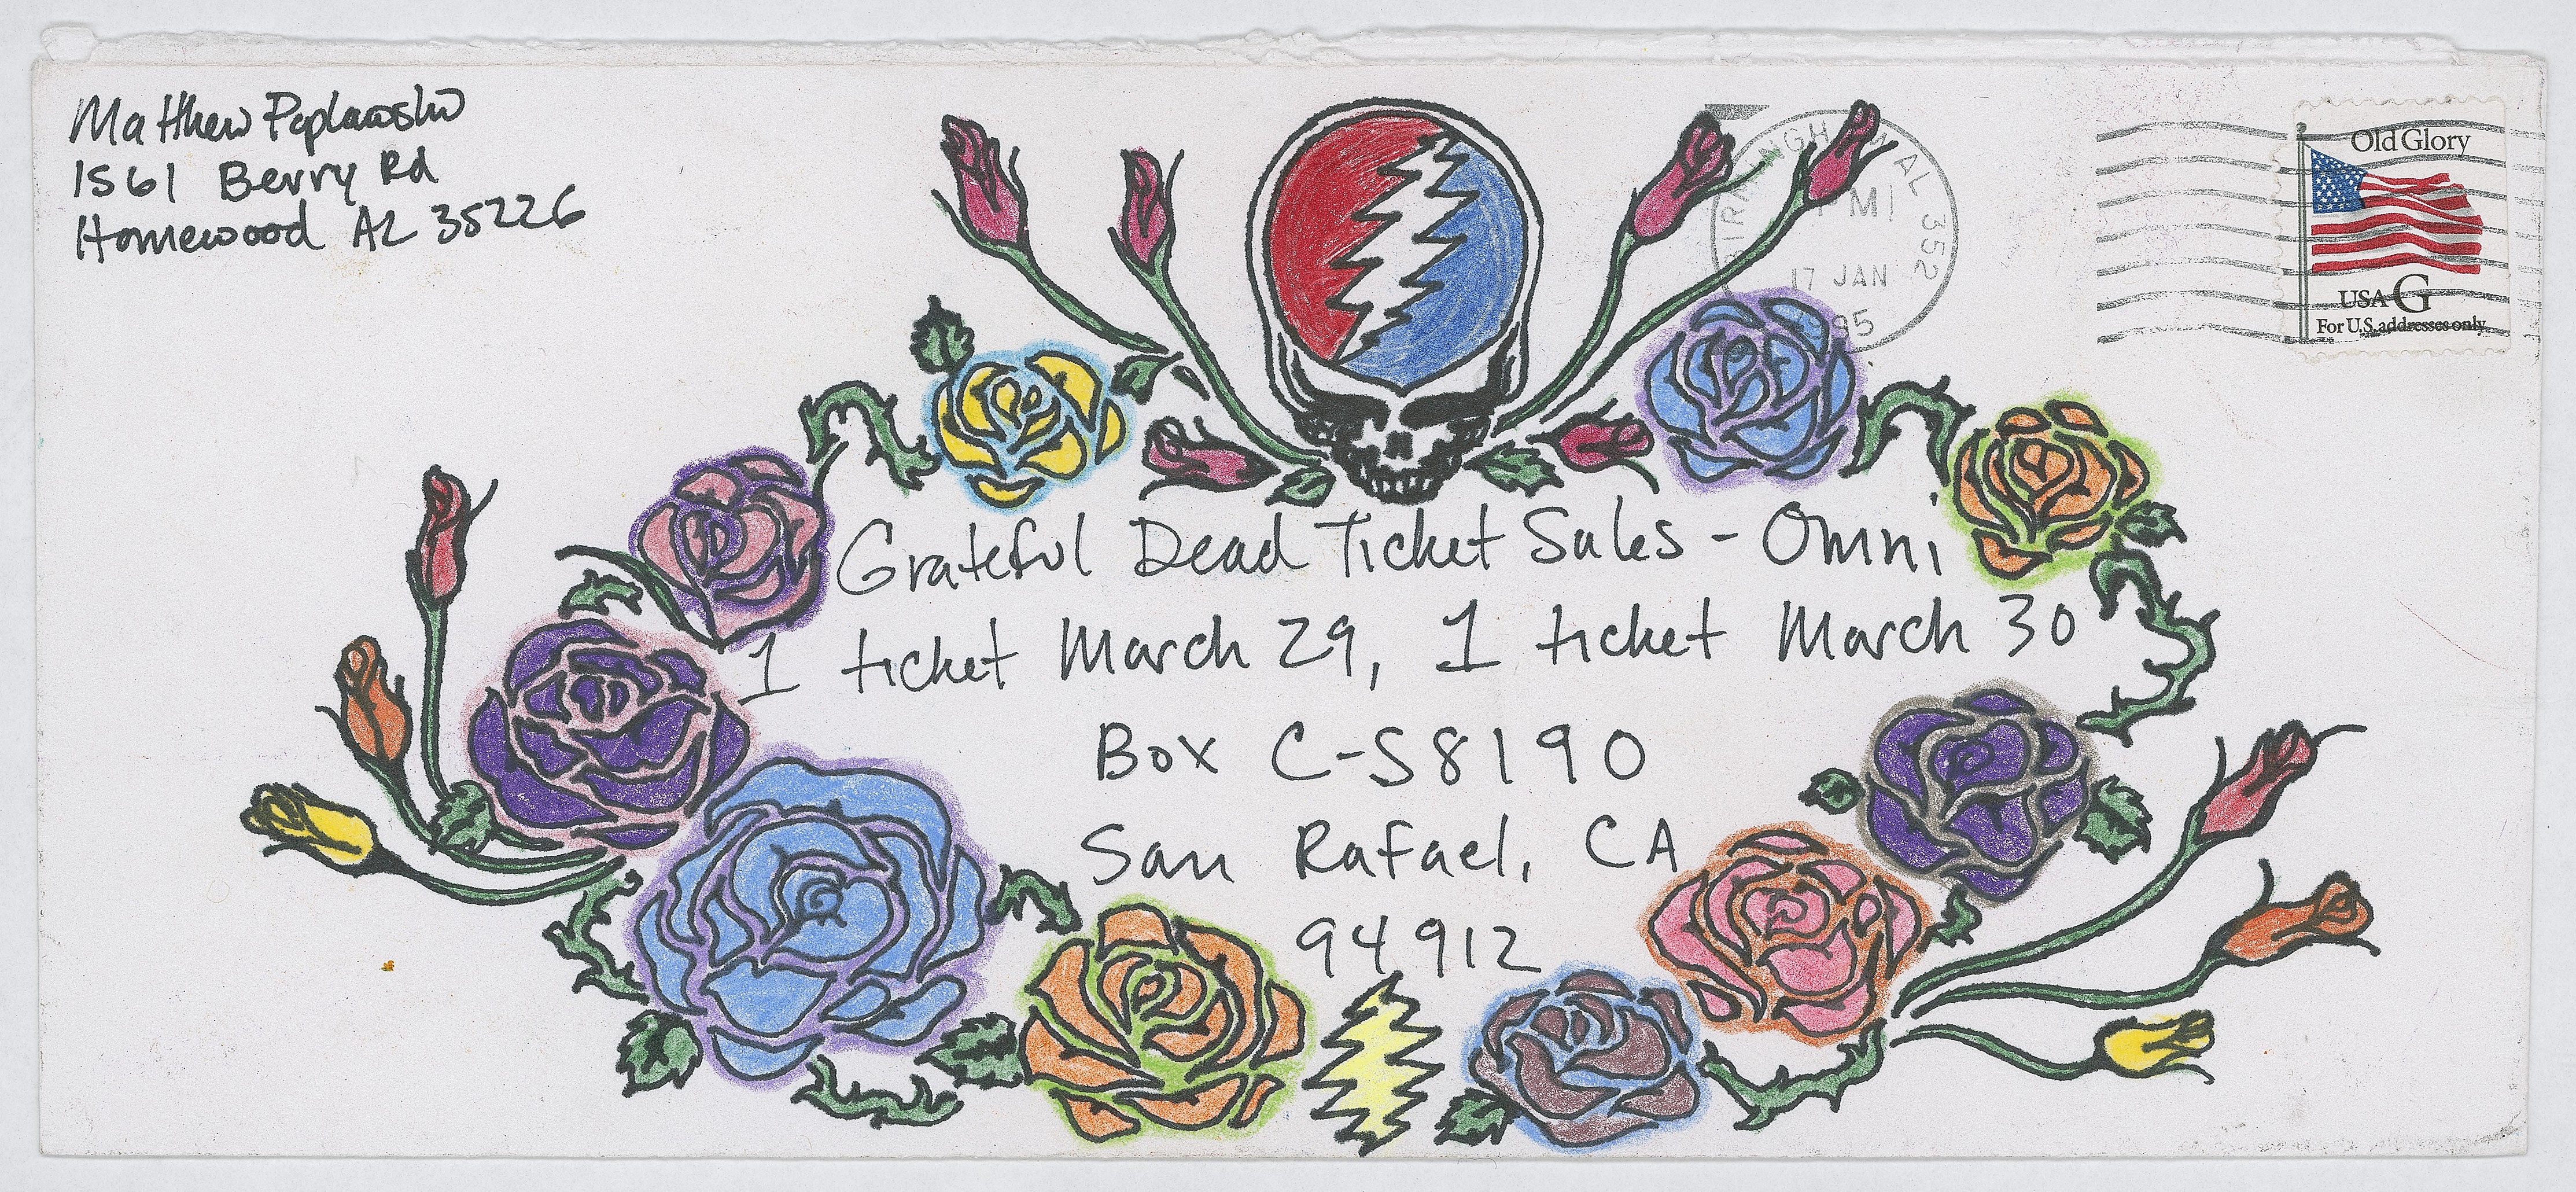 Matthew Poplawski
1561 Berry Rd
Homewood AL 35226
BIRMINGHAM AL 352
PM
17 JAN
1995
Old Glory
USA G
For U.S. addresses only
Grateful Dead Ticket Sales - Omni
1 ticket March 29, 1 ticket March 30
Box C-S8190
San Rafael, CA
94912